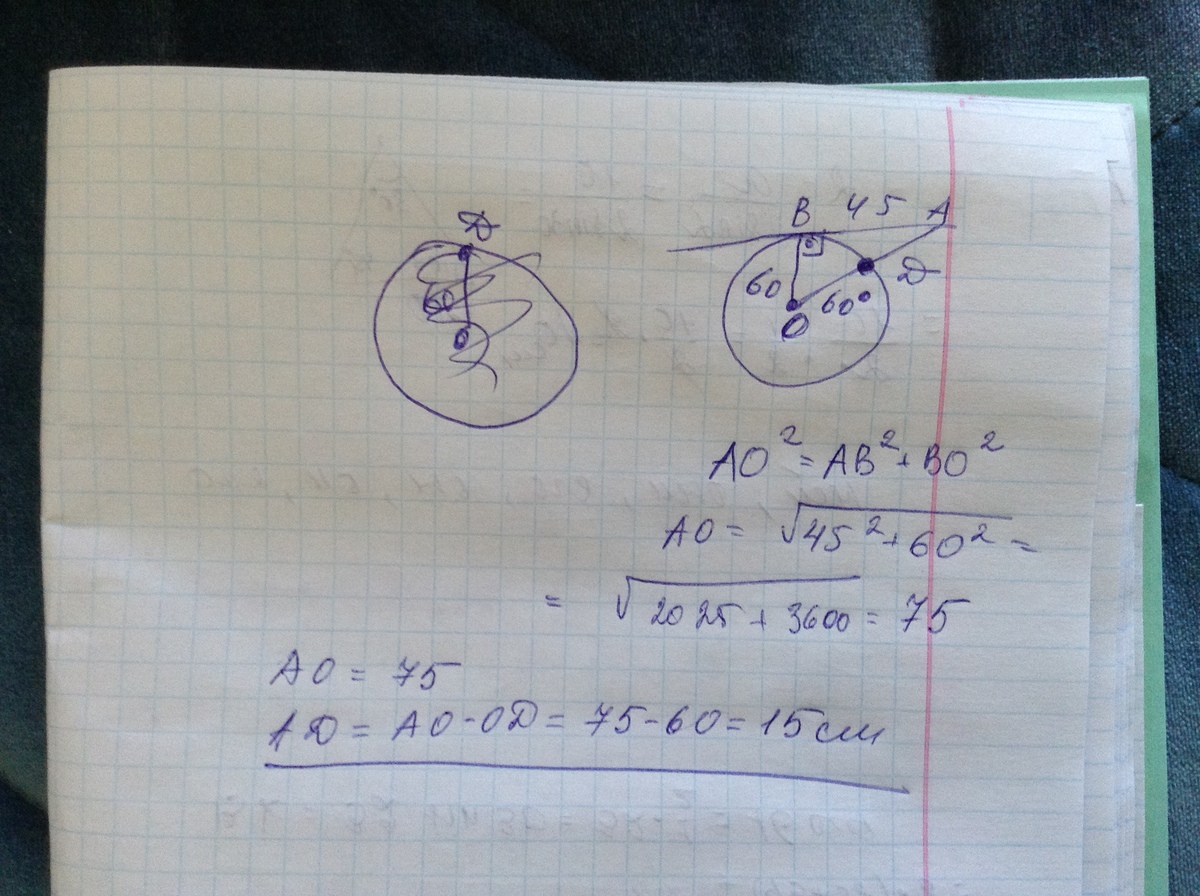 D
60
O
B 45 A
60
D
O
60°
AO² = AB² + BO²
AO = √45² + 60² =
= √2025 + 3600 = 75
AO = 75
AD = AO - OD = 75 - 60 = 15 см